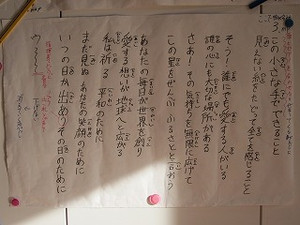 3. この小さな手でできること
見えない絵をたどって全てを感じること
そう！誰にでも愛する人がいる
誰の心にも大切な場所がある
さあ！その気持ちを無限に広げて
この星をぜんぶふるさとと言おう
あなたの毎日が世界を創り
愛する思いが地球へと広がる
私は祈る 平和のために
まだ見ぬあなたの笑顔のために
いつの日か出会うその日のために